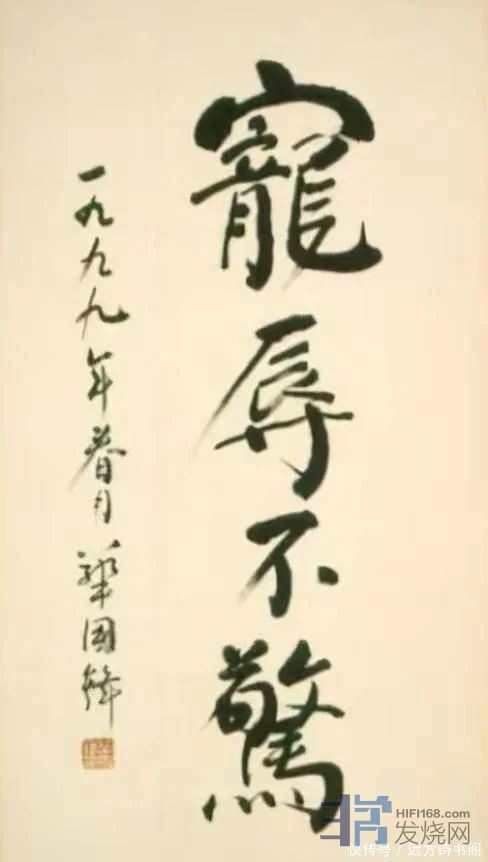 寵辱不驚
一九九九年春月 華國鋒
HIFI168.com
发烧网
快传号 / 远方诗书阁